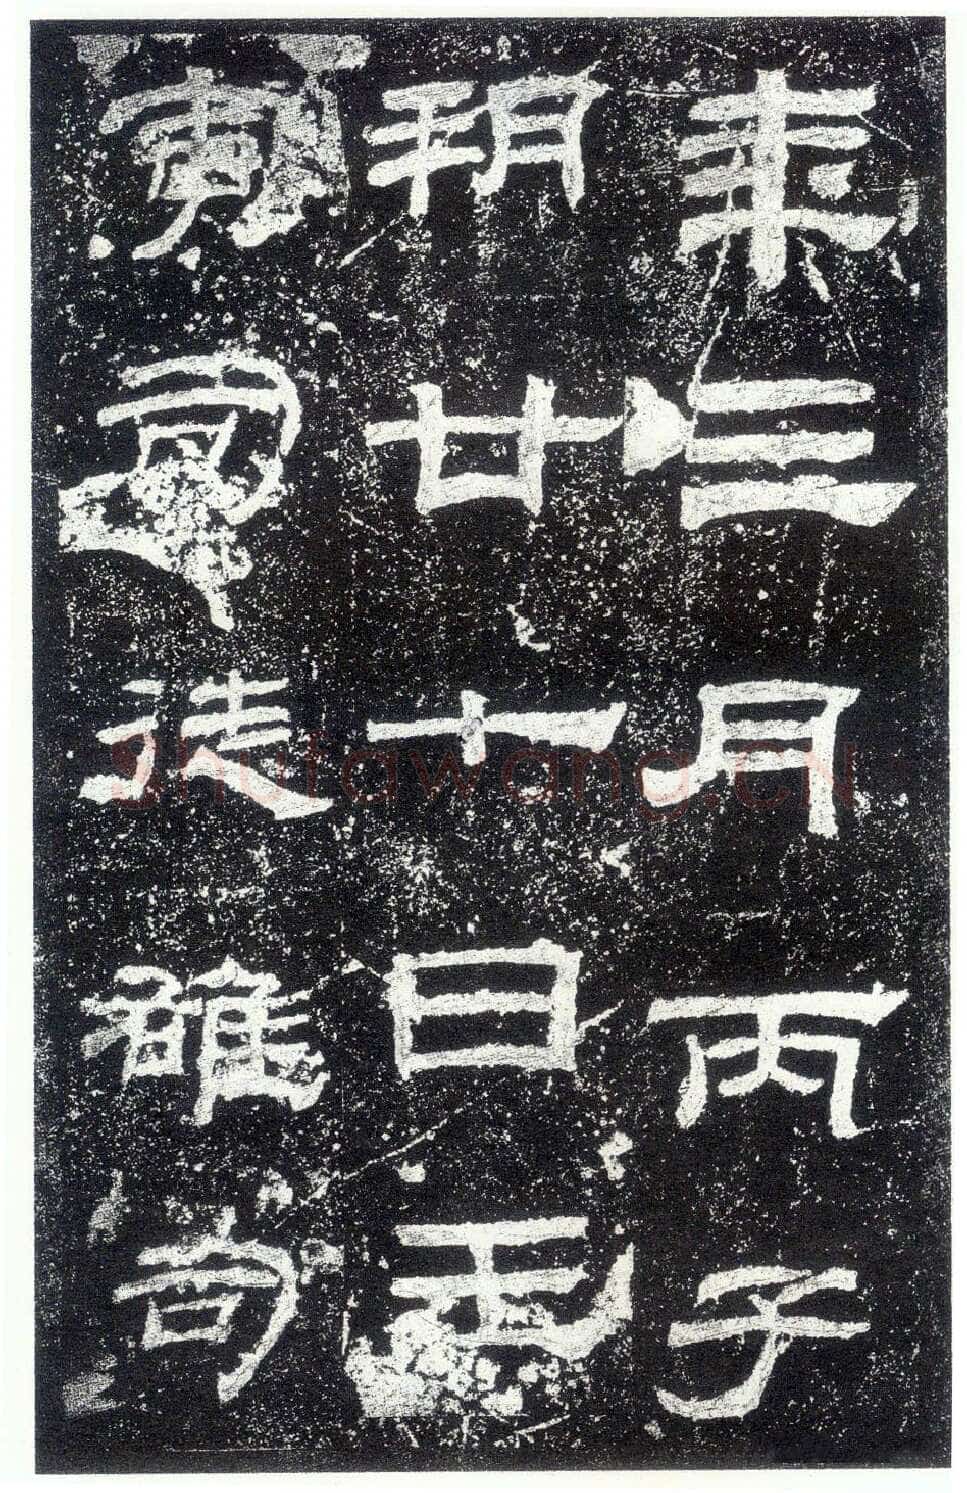 年三月丙子
朔廿七日壬
寅司徒雄司
Shufawang.CN